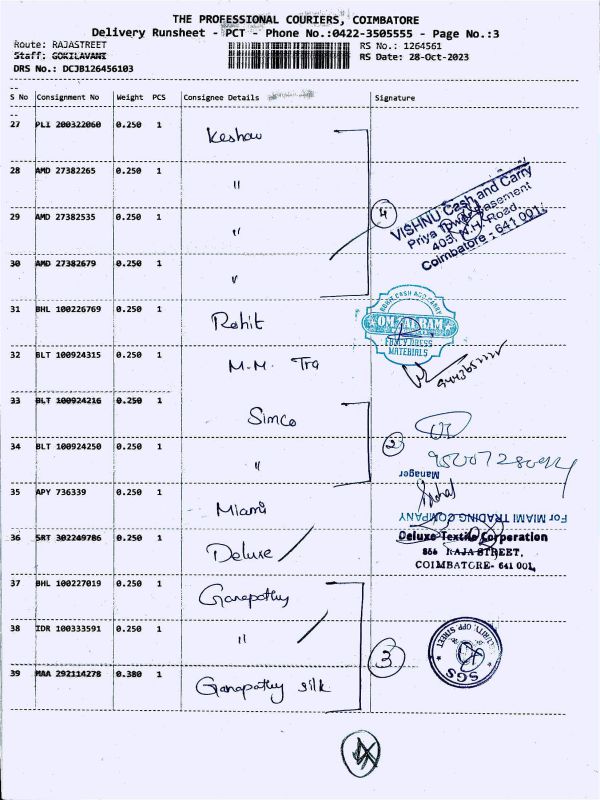 THE PROFESSIONAL COURIERS, COIMBATORE
Delivery Runsheet - PCT - Phone No.:0422-3505555 - Page No.:3
Route: RAJASTREET
RS No.: 1264561
Staff: GOKILAVANI
RS Date: 28-Oct-2023
DRS No.: DCJB126456103
S No Consignment No Weight PCS Consignee Details Signature
27 PLI 200322060 0.250 1 Keshav
28 AMD 27382265 0.250 1 "
29 AMD 27382535 0.250 1 "
4
VISHNU Cash and Carry
Priya Tower Basement
403, N.H. Road
Coimbatore - 641 001.
30 AMD 27382679 0.250 1 "
31 BHL 100226769 0.250 1 Rohit
OM SAI RAM
FANCY DRESS
MATERIALS
32 BLT 100924315 0.250 1 M.M. Tra
33 BLT 100924216 0.250 1 Simco
34 BLT 100924250 0.250 1 "
2
Manager
35 APY 736339 0.250 1 Miami
For MIAMI TRADING COMPANY
36 SRT 302249786 0.250 1 Deluxe
Deluxe Textile Corperation
866 RAJA STREET,
COIMBATORE- 641 001.
37 BHL 100227019 0.250 1 Ganapathy
38 IDR 100333591 0.250 1 "
3
SGS
39 MAA 292114278 0.380 1 Ganapathy silk